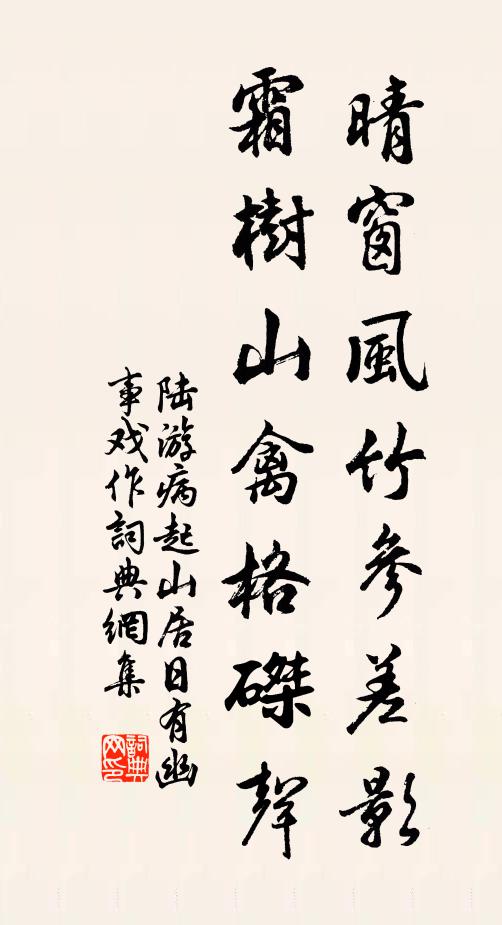 晴窗風竹參差影
霜樹山禽格磔聲
陆游病起山居日有幽
事戏作詞典網集
詞典
网印